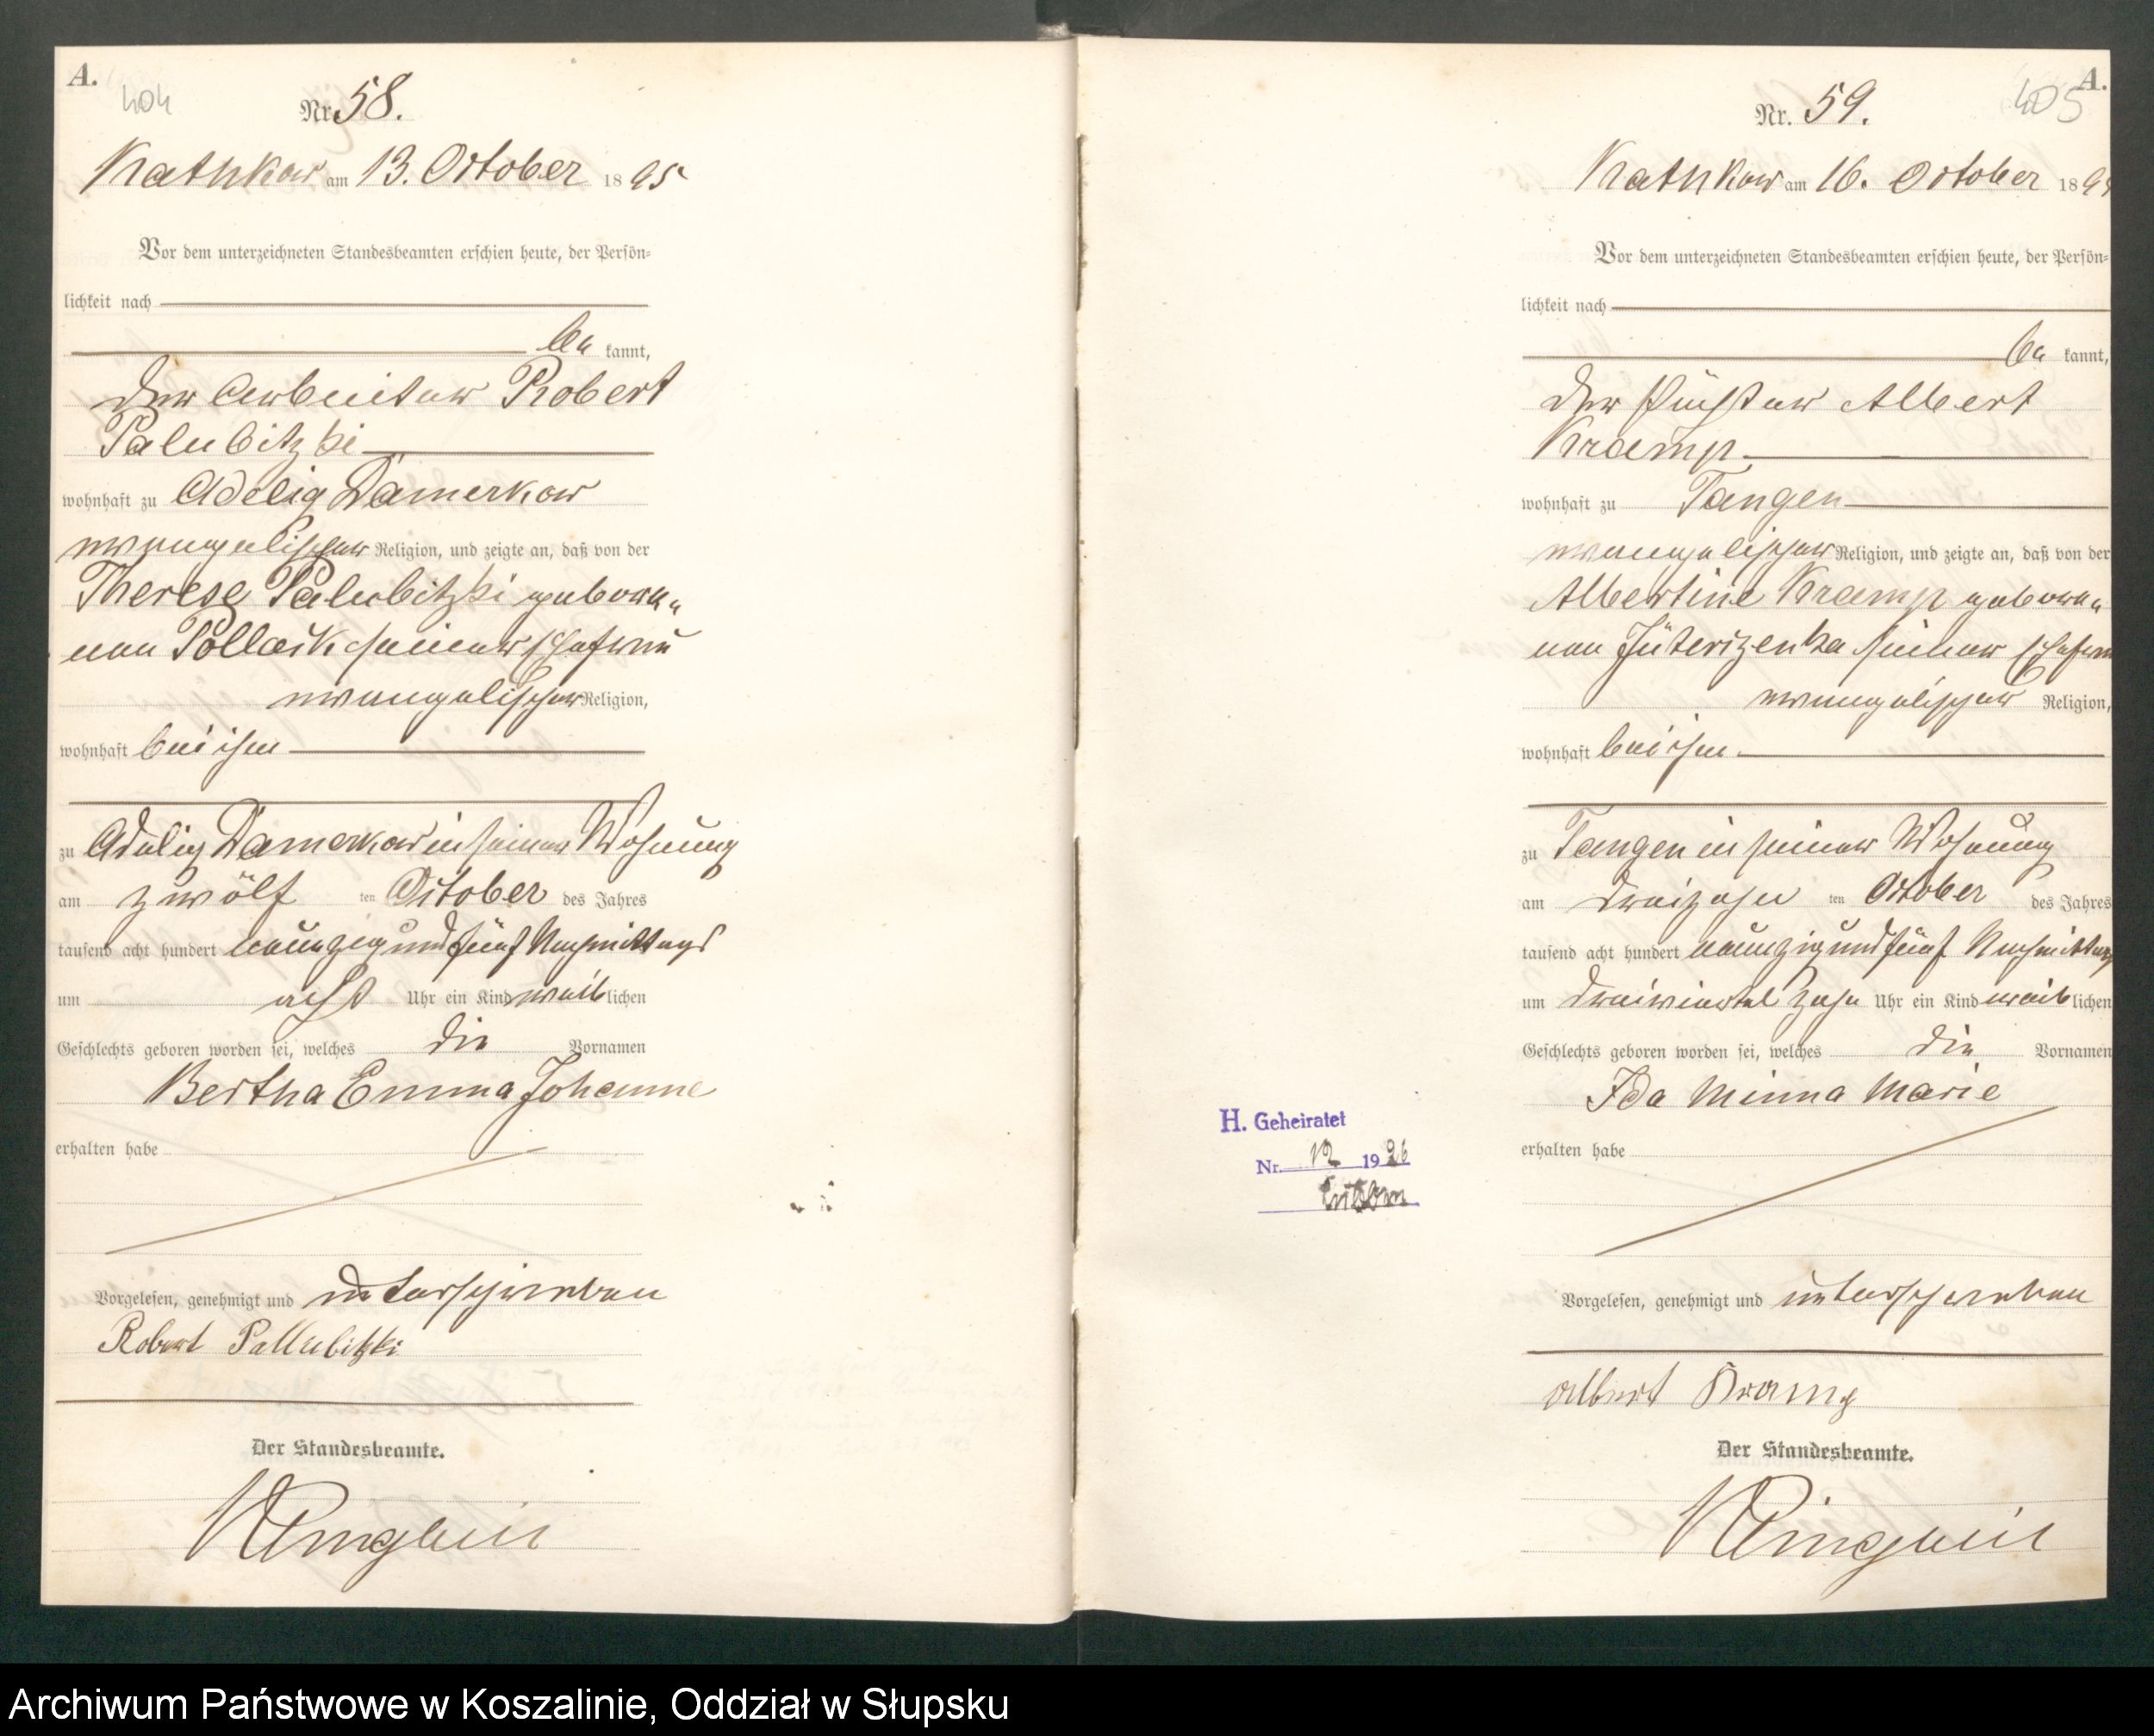 A.
404
Nr. 58.
Kathkow am 13. October 1895
Vor dem unterzeichneten Standesbeamten erschien heute, der Persön-
lichkeit nach
be kannt,
der Arbeiter Robert
Palubitzki
wohnhaft zu Adelig Damerkow
evangelischer Religion, und zeigte an, daß von der
Therese Palubitzki gebore-
nen Pollack seiner Ehefrau
evangelischer Religion,
wohnhaft bei ihm
zu Adelig Damerkow in seiner Wohnung
am zwölf ten October des Jahres
tausend acht hundert neunzig und fünf Nachmittags
um acht Uhr ein Kind weiblichen
Geschlechts geboren worden sei, welches die Vornamen
Bertha Emma Johanne
erhalten habe
Vorgelesen, genehmigt und unterschrieben
Robert Pallubitzki
Der Standesbeamte.
A.
405
Nr. 59.
Kathkow am 16. October 189
Vor dem unterzeichneten Standesbeamten erschien heute, der Persön-
lichkeit nach
be kannt,
der Albert
Kramp
wohnhaft zu Tangen
evangelischer Religion, und zeigte an, daß von der
Albertine Kramp gebore-
nen seiner Ehefrau
evangelischer Religion,
wohnhaft bei ihm
zu Tangen in seiner Wohnung
am dreizehn ten October des Jahres
tausend acht hundert neunzig und fünf Nachmittags
um dreiviertel zehn Uhr ein Kind weiblichen
Geschlechts geboren worden sei, welches die Vornamen
Ida Minna Marie
erhalten habe
H. Geheiratet
Nr. 12 1926
Vorgelesen, genehmigt und unterschrieben
Albert Kramp
Der Standesbeamte.
Archiwum Państwowe w Koszalinie, Oddział w Słupsku